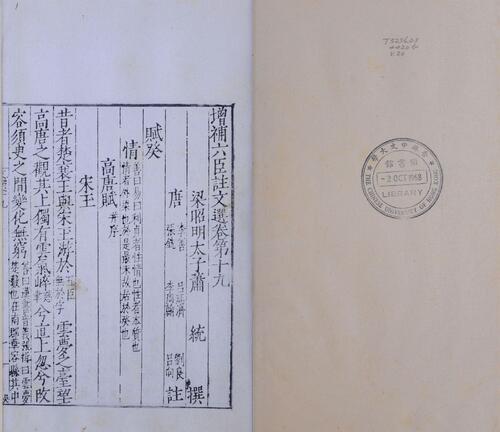 增補六臣註文選卷第十九
梁昭明太子蕭統撰
唐 李善 呂延濟 劉良 張銑 李周翰 呂向 註
賦癸
情
善曰易曰利貞者性情也性者本質也
高唐賦 并序
宋玉
昔者楚襄王與宋玉遊於雲夢之臺望
高唐之觀其上獨有雲氣崪兮直上忽兮改
容須臾之間變化無窮
香港中文大學
圖書館
- 2 OCT 1968
LIBRARY
THE CHINESE UNIVERSITY OF HONG KONG